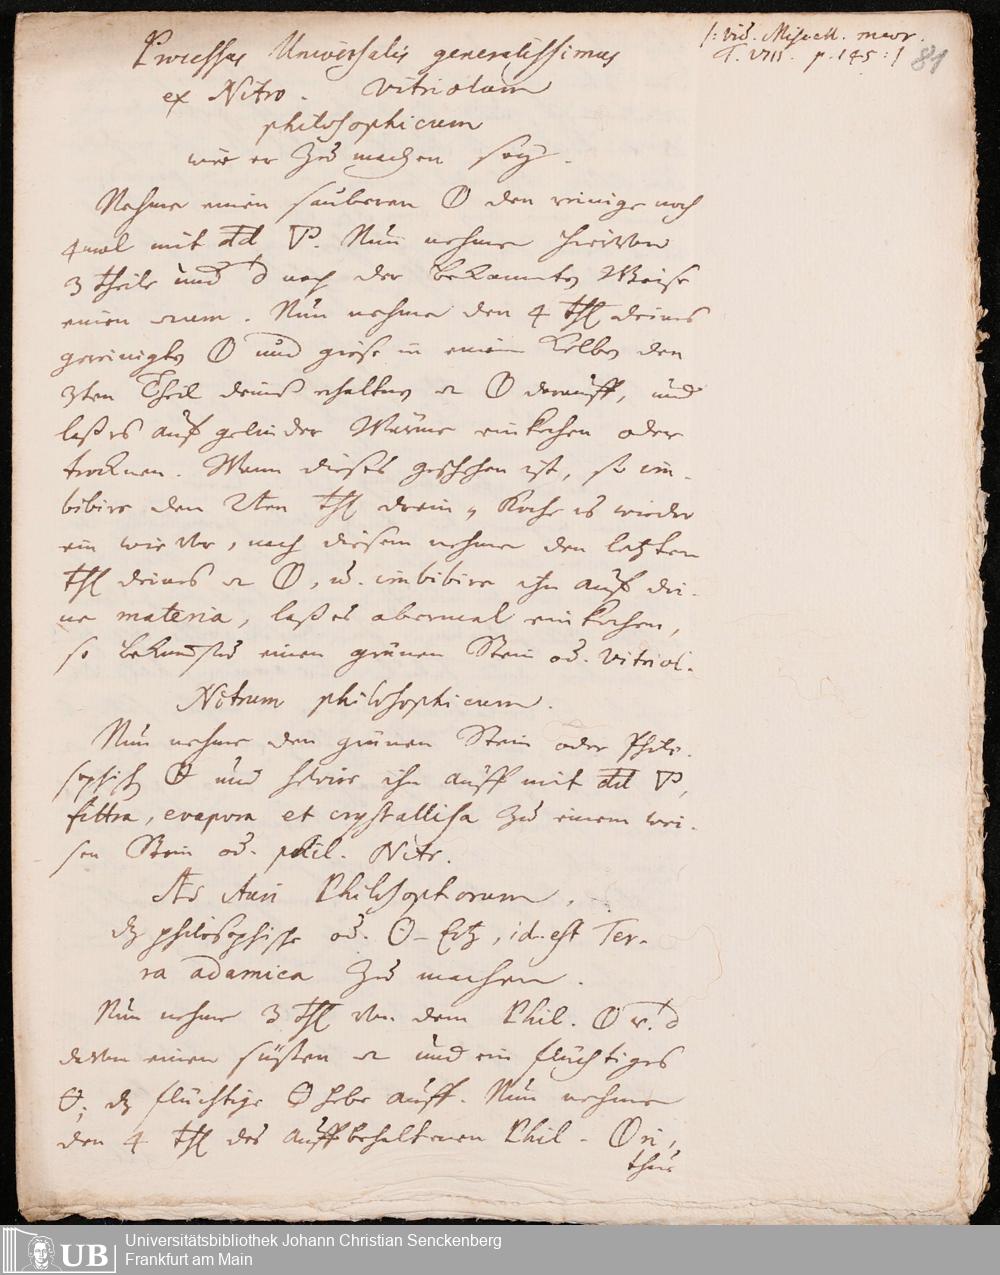 Processus Universalis generalissimus
ex Nitro. Vitriolum
philosophicum
wie er zu machen sey.
/: vid. Miscell. mear.
T. VIII. p. 145 :/
81
Nehme einen sauberen den reinige noch
4mal mit Nun nehme hievon
3 theile und nach der bekannten Weise
einen Nun nehme den 4 thl deines
gereinigten und giese in einem Kolben den
3ten Theil deines erhaltenen darauff, und
laß es auf gelinder Wärme einkochen oder
trocknen. Wenn dieses geschehen ist, so im-
bibire den 2ten thl drein, Koche es wieder
ein wie vor, nach diesem nehme den letzten
thl deines , u. imbibire ihn auf dei-
ne materia, laß es abermal einkochen,
so bekomstu einen grünen Stein od. Vitriol.
Nitrum philosophicum.
Nun nehme den grünen Stein oder Philo-
sophisch und solvire ihn auff mit
filtra, evapora et crystallisa zu einem wei-
sen Stein od. phil. Nitr.
Aes Auri Philosophorum.
philosophische od. ☉-Ertz, id. est Ter-
ra adamica zu machen.
Nun nehme 3 thl von dem Phil.
davon einen süßen und ein flüchtiges
flüchtige hebe auff. Nun nehme
den 4 thl des auffbehaltenen Phil.
thue
UB
Universitätsbibliothek Johann Christian Senckenberg
Frankfurt am Main